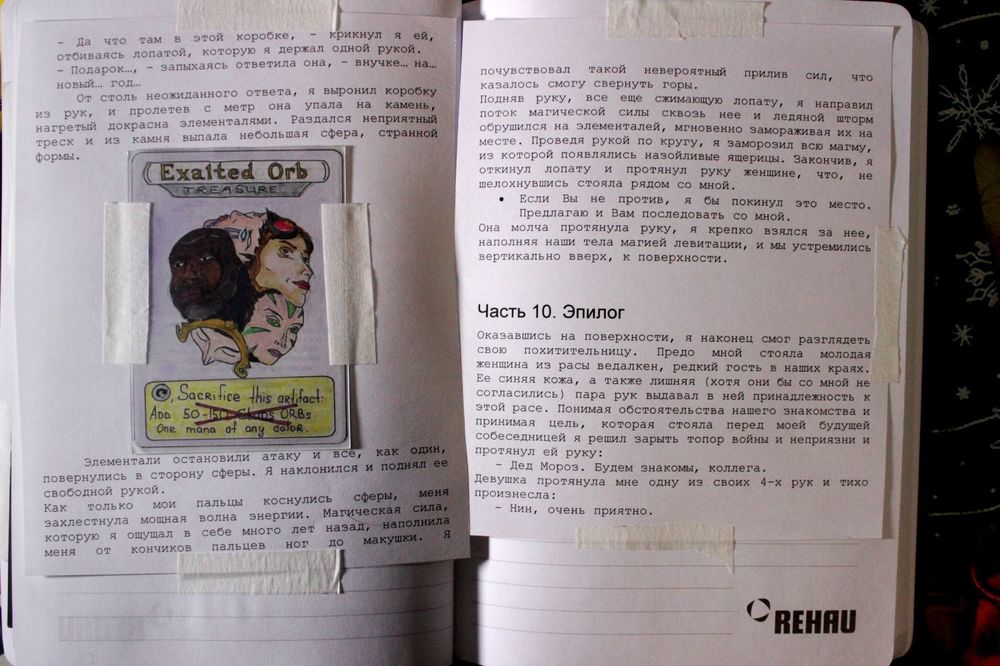 – Да что там в этой коробке, – крикнул я ей,
отбиваясь лопатой, которую я держал одной рукой.
– Подарок…, – запыхаясь ответила она, – внучке… на…
новый… год…
От столь неожиданного ответа, я выронил коробку
из рук, и пролетев с метр она упала на камень,
нагретый докрасна элементалями. Раздался неприятный
треск и из камня выпала небольшая сфера, странной
формы.
Exalted Orb
TREASURE
, Sacrifice this artifact:
ADD 50-150 Chaos ORBs
One mana of any color.
Элементали остановили атаку и все, как один,
повернулись в сторону сферы. Я наклонился и поднял ее
свободной рукой.
Как только мои пальцы коснулись сферы, меня
захлестнула мощная волна энергии. Магическая сила,
которую я ощущал в себе много лет назад, наполнила
меня от кончиков пальцев ног до макушки. Я
почувствовал такой невероятный прилив сил, что
казалось смогу свернуть горы.
Подняв руку, все еще сжимающую лопату, я направил
поток магической силы сквозь нее и ледяной шторм
обрушился на элементалей, мгновенно замораживая их на
месте. Проведя рукой по кругу, я заморозил всю магму,
из которой появлялись назойливые ящерицы. Закончив, я
откинул лопату и протянул руку женщине, что, не
шелохнувшись стояла рядом со мной.
• Если Вы не против, я бы покинул это место.
Предлагаю и Вам последовать со мной.
Она молча протянула руку, я крепко взялся за нее,
наполняя наши тела магией левитации, и мы устремились
вертикально вверх, к поверхности.
Часть 10. Эпилог
Оказавшись на поверхности, я наконец смог разглядеть
свою похитительницу. Предо мной стояла молодая
женщина из расы ведалкен, редкий гость в наших краях.
Ее синяя кожа, а также лишняя (хотя они бы со мной не
согласились) пара рук выдавал в ней принадлежность к
этой расе. Понимая обстоятельства нашего знакомства и
принимая цель, которая стояла перед моей будущей
собеседницей я решил зарыть топор войны и неприязни и
протянул ей руку:
– Дед Мороз. Будем знакомы, коллега.
Девушка протянула мне одну из своих 4-х рук и тихо
произнесла:
– Нин, очень приятно.
REHAU